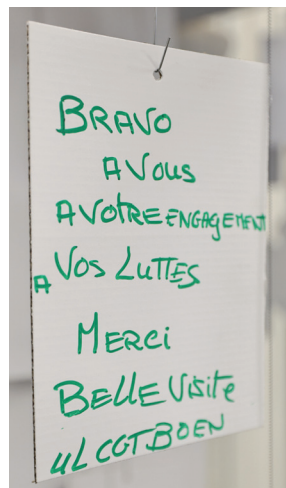 BRAVO
A VOUS
A VOTRE ENGAGEMENT
A VOS LUTTES
MERCI
BELLE VISITE
UL CGT BOEN